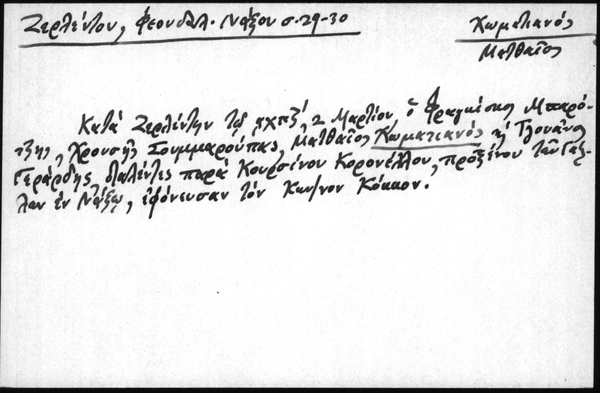 Ζερλέντου, Φεουδαλ. Νάξου σ. 29-30
Κωματιανός
Ματθαῖος
Κατὰ Ζερλέντην τῷ ͵αχπζ΄, 2 Μαρτίου ὁ Φραγκίσκος Μπαρό-
τζης, Χρουσῆς Σουμμαρούπας, Ματθαῖος Κωματιανός κ̀ Τζουάνης
Γεράρδης σταλέντες παρὰ Κουρσίνου Κορονέλλου, προξένου τῶν Γάλ-
λων ἐν Νάξῳ, ἐφόνευσαν τὸν Κων/νον Κόκκον.